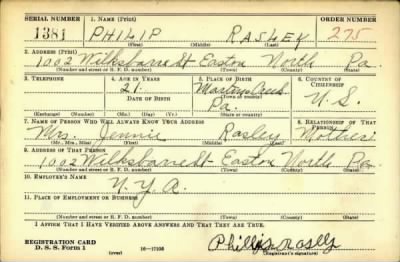 SERIAL NUMBER 1. NAME (Print) ORDER NUMBER
1381 PHILIP RASLEY 275
(First) (Middle) (Last)
2. ADDRESS (Print)
1002 Wilksbarre St Easton North Pa.
(Number and street or R. F. D. number) (Town) (County) (State)
3. TELEPHONE 4. AGE IN YEARS 5. PLACE OF BIRTH 6. COUNTRY OF CITIZENSHIP
21 Martins Creek U.S.
DATE OF BIRTH Pa.
7. NAME OF PERSON WHO WILL ALWAYS KNOW YOUR ADDRESS 8. RELATIONSHIP OF THAT PERSON
Mrs. Jennie Rasley Mother
(Mr., Mrs., Miss) (First) (Middle) (Last)
9. ADDRESS OF THAT PERSON
1002 Wilksbarre St Easton North Pa.
(Number and street or R. F. D. number) (Town) (County) (State)
10. EMPLOYER'S NAME
N.Y.A.
11. PLACE OF EMPLOYMENT OR BUSINESS
(Number and street or R. F. D. number) (Town) (County) (State)
I AFFIRM THAT I HAVE VERIFIED ABOVE ANSWERS AND THAT THEY ARE TRUE.
REGISTRATION CARD
D. S. S. Form 1 (over) 16-17105 (Registrant's signature)